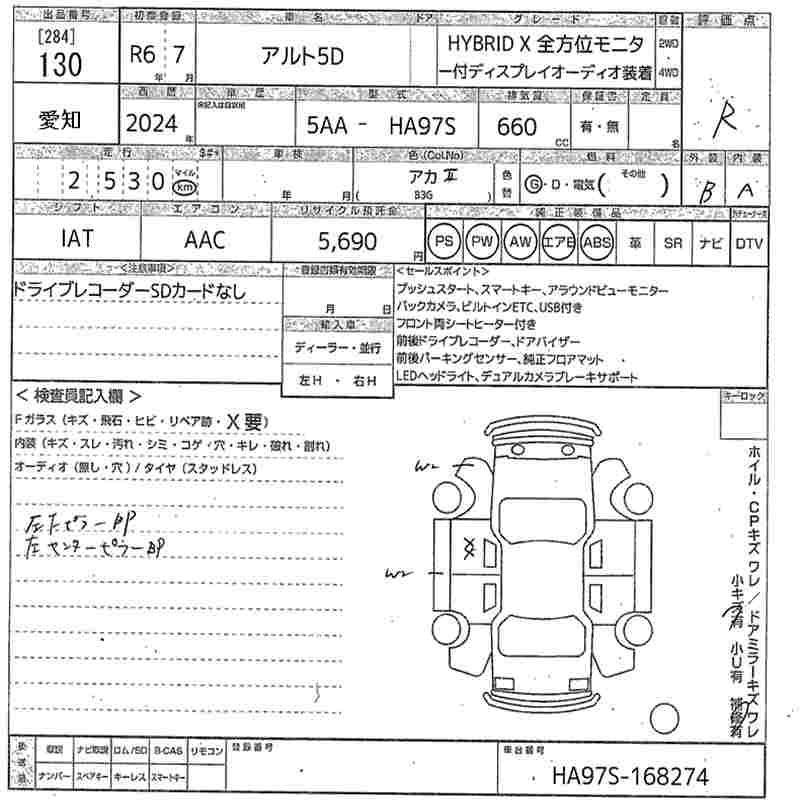 出品番号 初度登録 車名 ドア グレード 駆動 評価点
[284]
130
R6 年 7 月
アルト5D
HYBRID X 全方位モニタ
ー付ディスプレイオーディオ装着
2WD
4WD
R
愛知
西暦 車歴 型式 排気量 保証書 定員
2024 年
5AA - HA97S
660 CC
有・無
名
走行 車検 色(Col.No) 燃料 外装 内装
2530 マイル km
年 月
アカⅡ
( B3G )
色替
G・D・電気 ( その他 )
B
A
シフト エアコン リサイクル預託金 純正装備品
IAT
AAC
5,690 円
PS PW AW エアB ABS 革 SR ナビ DTV
<注意事項> 登録書類有効期限 <セールスポイント>
ドライブレコーダーSDカードなし
月 日
輸入車
ディーラー・並行
左H ・ 右H
プッシュスタート、スマートキー、アラウンドビューモニター
バックカメラ、ビルトインETC、USB付き
フロント両シートヒーター付き
前後ドライブレコーダー、ドアバイザー
前後パーキングセンサー、純正フロアマット
LEDヘッドライト、デュアルカメラブレーキサポート
<検査員記入欄>
キーロック
Fガラス(キズ・飛石・ヒビ・リペア跡・X要)
内装(キズ・スレ・汚れ・シミ・コゲ・穴・キレ・破れ・割れ)
オーディオ(無し・穴)/タイヤ(スタッドレス)
W2
XX
W2
左センターピラーBP
ホイル・CPキズ ワレ/ドアミラーキズ ワレ
小キズ有 小U有 補修有
後送品
取説 ナビ取説 ロム/SD B-CAS リモコン
ナンバー スペアキー キーレス スマートキー
登録番号
車台番号
HA97S-168274